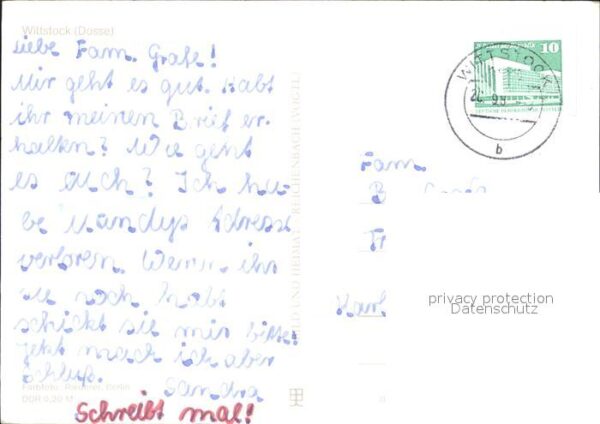 Wittstock (Dosse)
Liebe Fam. Grafe!
Mir geht es gut. Habt
ihr meinen Brief er-
halten? Wie geht
es euch? Ich ha-
be Mandys Adresse
verloren. Wenn ihr
sie noch habt
schickt sie mir bitte!
Jetzt mach ich aber
Schluß.
Sandra
DDR 0,20 M
Schreibt mal!
BILD UND HEIMAT REICHENBACH (VOGTL)
10
WITTSTOCK
b
Fam.
B
Karl
privacy protection
Datenschutz